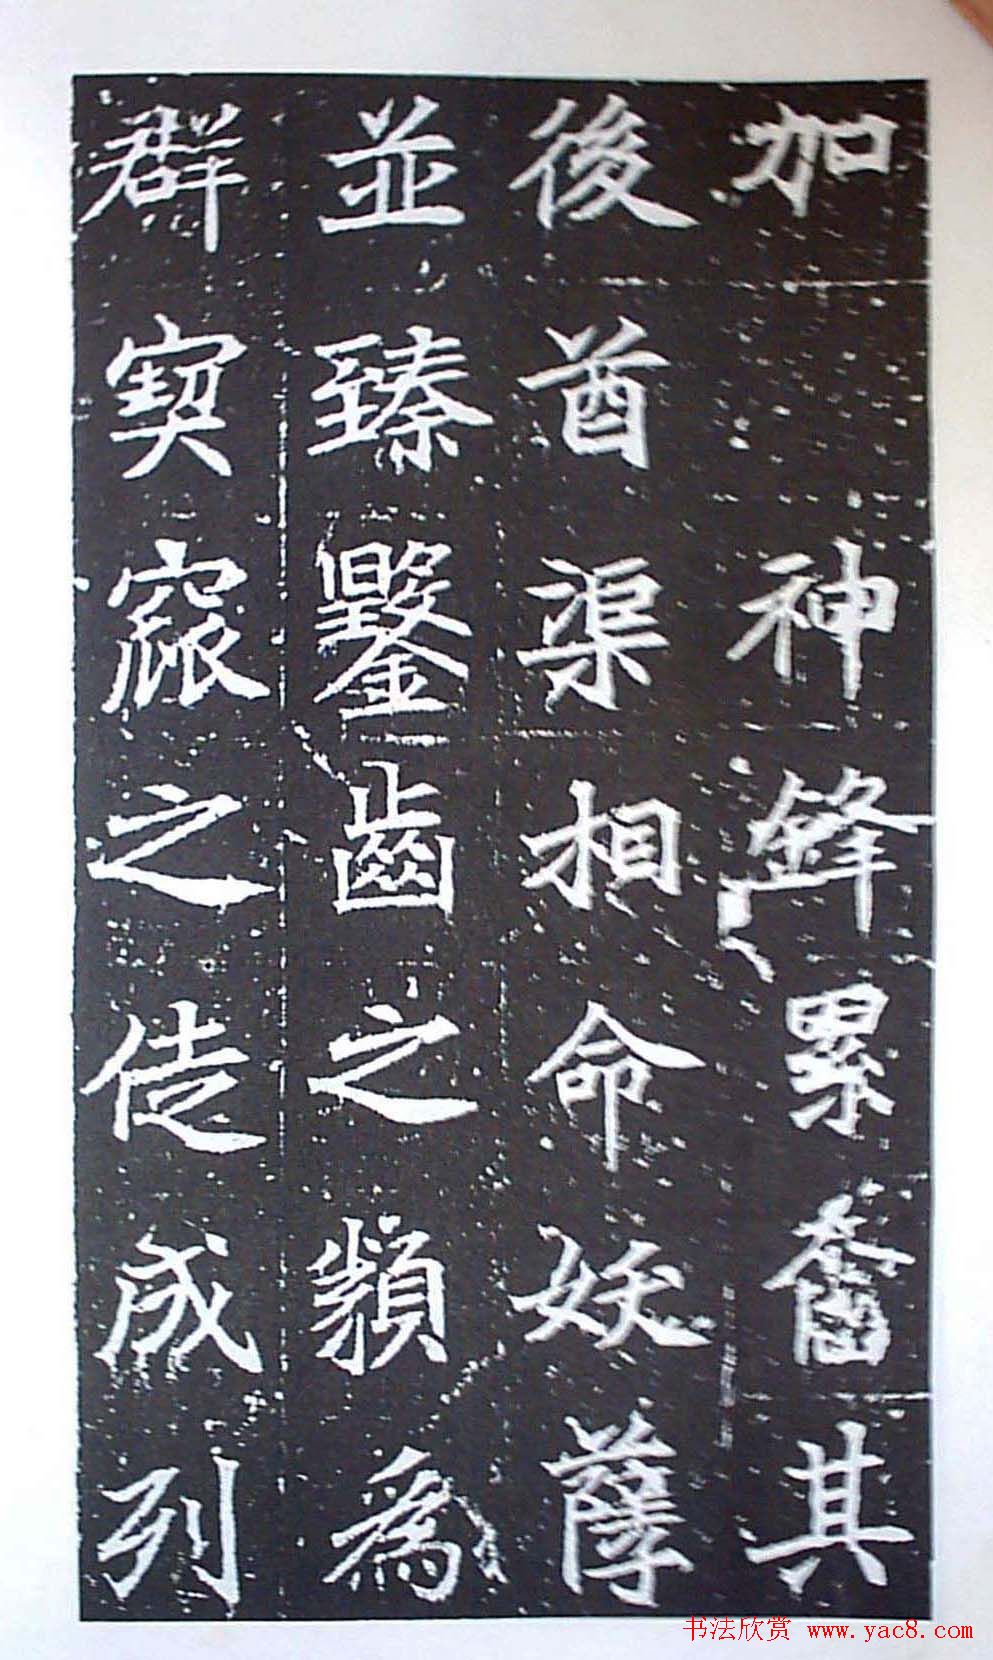 加 神鋒累奮其
後酋渠相命妖孽
並臻鑿齒之類爲
群窫窳之徒成列
书法欣赏 www.yac8.com